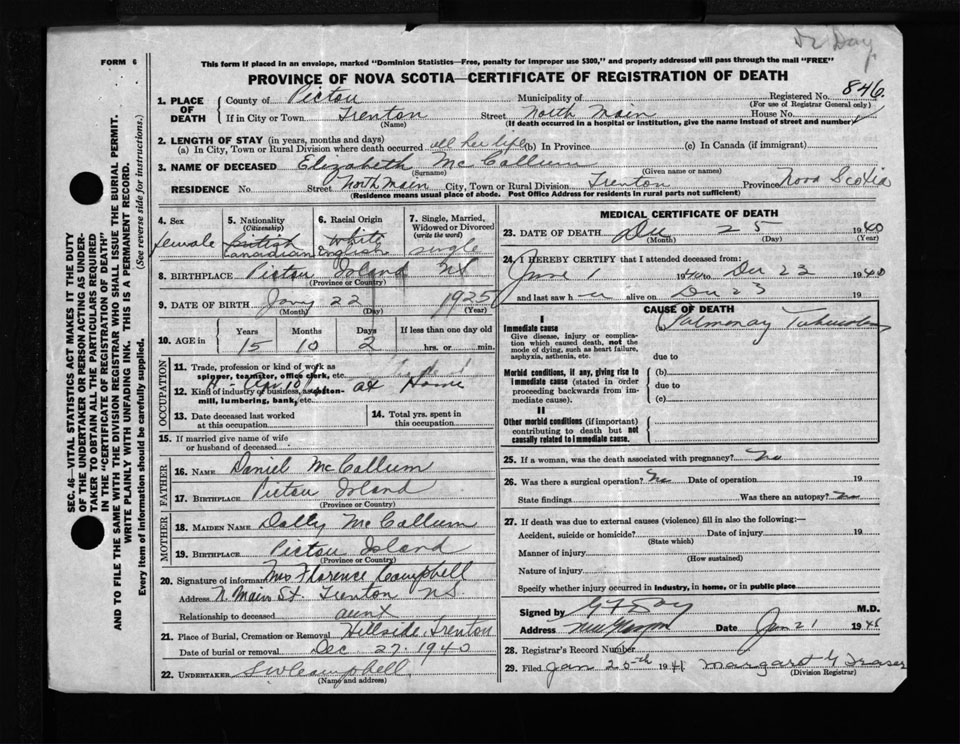 Dr Day
FORM 6
This form if placed in an envelope, marked "Dominion Statistics—Free, penalty for improper use $300," and properly addressed will pass through the mail "FREE"
PROVINCE OF NOVA SCOTIA—CERTIFICATE OF REGISTRATION OF DEATH
SEC. 46—VITAL STATISTICS ACT MAKES IT THE DUTY
OF THE UNDERTAKER OR PERSON ACTING AS UNDER-
TAKER TO OBTAIN ALL THE PARTICULARS REQUIRED
IN THE "CERTIFICATE OF REGISTRATION OF DEATH"
AND TO FILE THE SAME WITH THE DIVISION REGISTRAR WHO SHALL ISSUE THE BURIAL PERMIT.
WRITE PLAINLY WITH UNFADING INK. THIS IS A PERMANENT RECORD.
Every item of information should be carefully supplied. (See reverse side for instructions.)
1. PLACE OF DEATH
County of Pictou Municipality of Registered No. 846
(For use of Registrar General only)
If in City or Town Trenton Street North Main House No.
(Name) (If death occurred in a hospital or institution, give the name instead of street and number)
2. LENGTH OF STAY (in years, months and days)
(a) In City, Town or Rural Division where death occurred all her life (b) In Province (c) In Canada (if immigrant)
3. NAME OF DECEASED Elizabeth McCallum
(Surname) (Given name or names)
RESIDENCE No. Street North Main City, Town or Rural Division Trenton Province Nova Scotia
(Residence means usual place of abode. Post Office Address for residents in rural parts not sufficient)
4. Sex female
5. Nationality (Citizenship) British Canadian
6. Racial Origin White English
7. Single, Married, Widowed or Divorced (write the word) single
8. BIRTHPLACE Pictou Island NS
(Province or Country)
9. DATE OF BIRTH Jany 22 1925
(Month) (Day) (Year)
10. AGE in Years Months Days If less than one day old
15 10 2 hrs. or min.
OCCUPATION
11. Trade, profession or kind of work as
spinner, teamster, office clerk, etc.
12. Kind of industry or business, as cotton-
mill, lumbering, bank, etc. at Home
13. Date deceased last worked
at this occupation
14. Total yrs. spent in
this occupation
15. If married give name of wife
or husband of deceased
FATHER
16. NAME Daniel McCallum
17. BIRTHPLACE Pictou Island
(Province or Country)
MOTHER
18. MAIDEN NAME Dolly McCallum
19. BIRTHPLACE Pictou Island
(Province or Country)
20. Signature of informant Mrs Florence Campbell
Address N. Main St Trenton NS
Relationship to deceased aunt
21. Place of Burial, Cremation or Removal Hillside, Trenton
Date of burial or removal Dec 27 1940
22. UNDERTAKER S W Campbell
(Name and address)
MEDICAL CERTIFICATE OF DEATH
23. DATE OF DEATH Dec 25 1940
(Month) (Day) (Year)
24. I HEREBY CERTIFY that I attended deceased from:
June 1 1940 to Dec 23 1940
and last saw h er alive on Dec 23 19
CAUSE OF DEATH
I
Immediate cause
Give disease, injury or complica-
tion which caused death, not the
mode of dying, such as heart failure,
asphyxia, asthenia, etc.
Pulmonary Tuberculosis
due to
Morbid conditions, if any, giving rise to
immediate cause (stated in order
proceeding backwards from im-
mediate cause).
(b)
due to
(c)
II
Other morbid conditions (if important)
contributing to death but not
causally related to immediate cause.
25. If a woman, was the death associated with pregnancy? No
26. Was there a surgical operation? No Date of operation 19
State findings Was there an autopsy? No
27. If death was due to external causes (violence) fill in also the following:—
Accident, suicide or homicide? Date of injury 19
(State which)
Manner of injury
(How sustained)
Nature of injury
Specify whether injury occurred in industry, in home, or in public place
Signed by G F Day M.D.
Address New Glasgow Date Jan 21 19
28. Registrar's Record Number
29. Filed Jan 20th 1941 Margaret G Fraser
(Division Registrar)